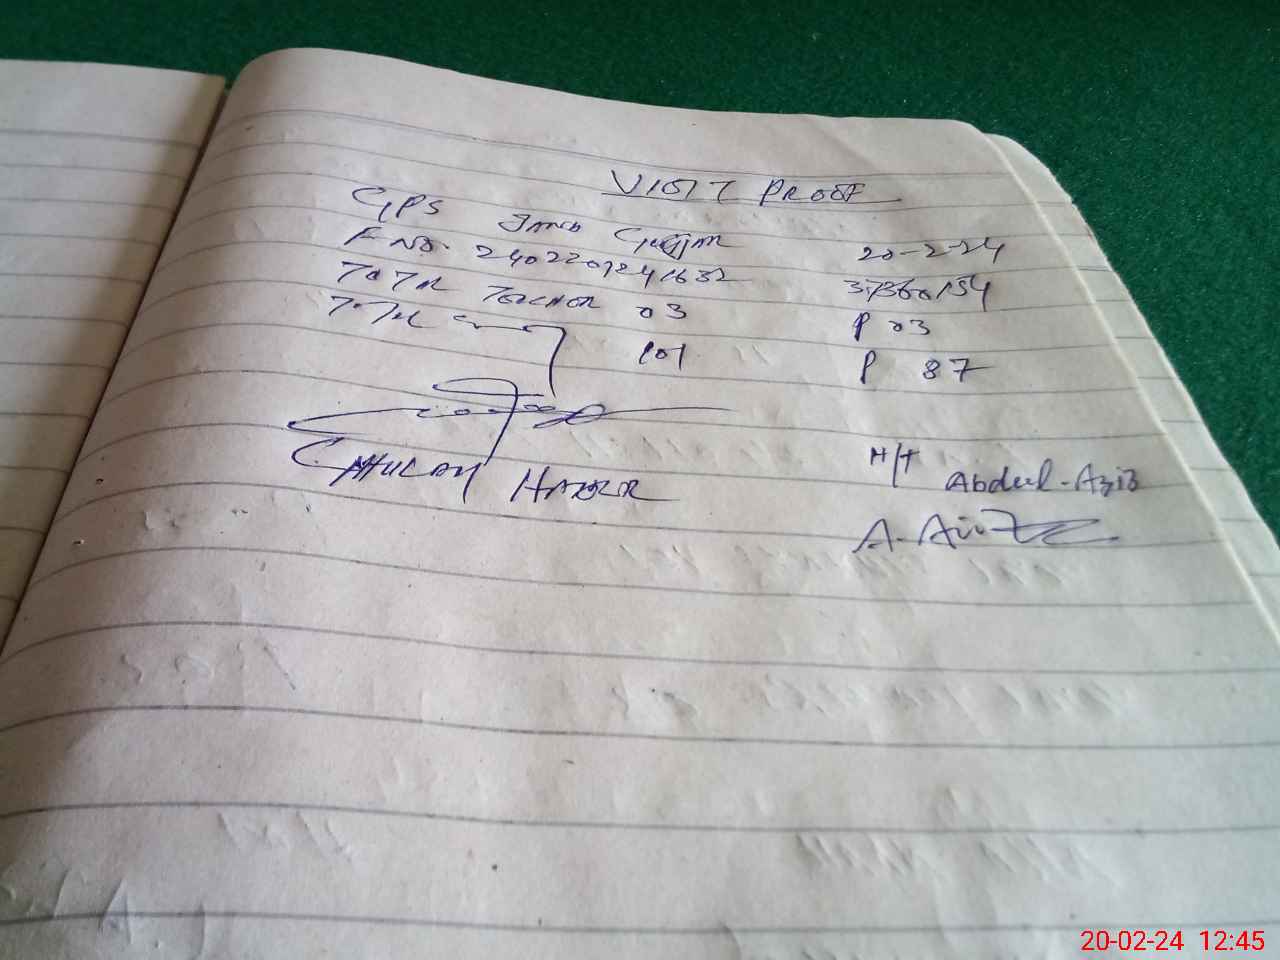 VISIT PROOF
GPS 20-2-24
F No. 2402201241632 37360154
Total Teacher 03 P 03
Total 101 P 87
Ghulam Haider H/T Abdul-Aziz
A-Aziz
20-02-24 12:45